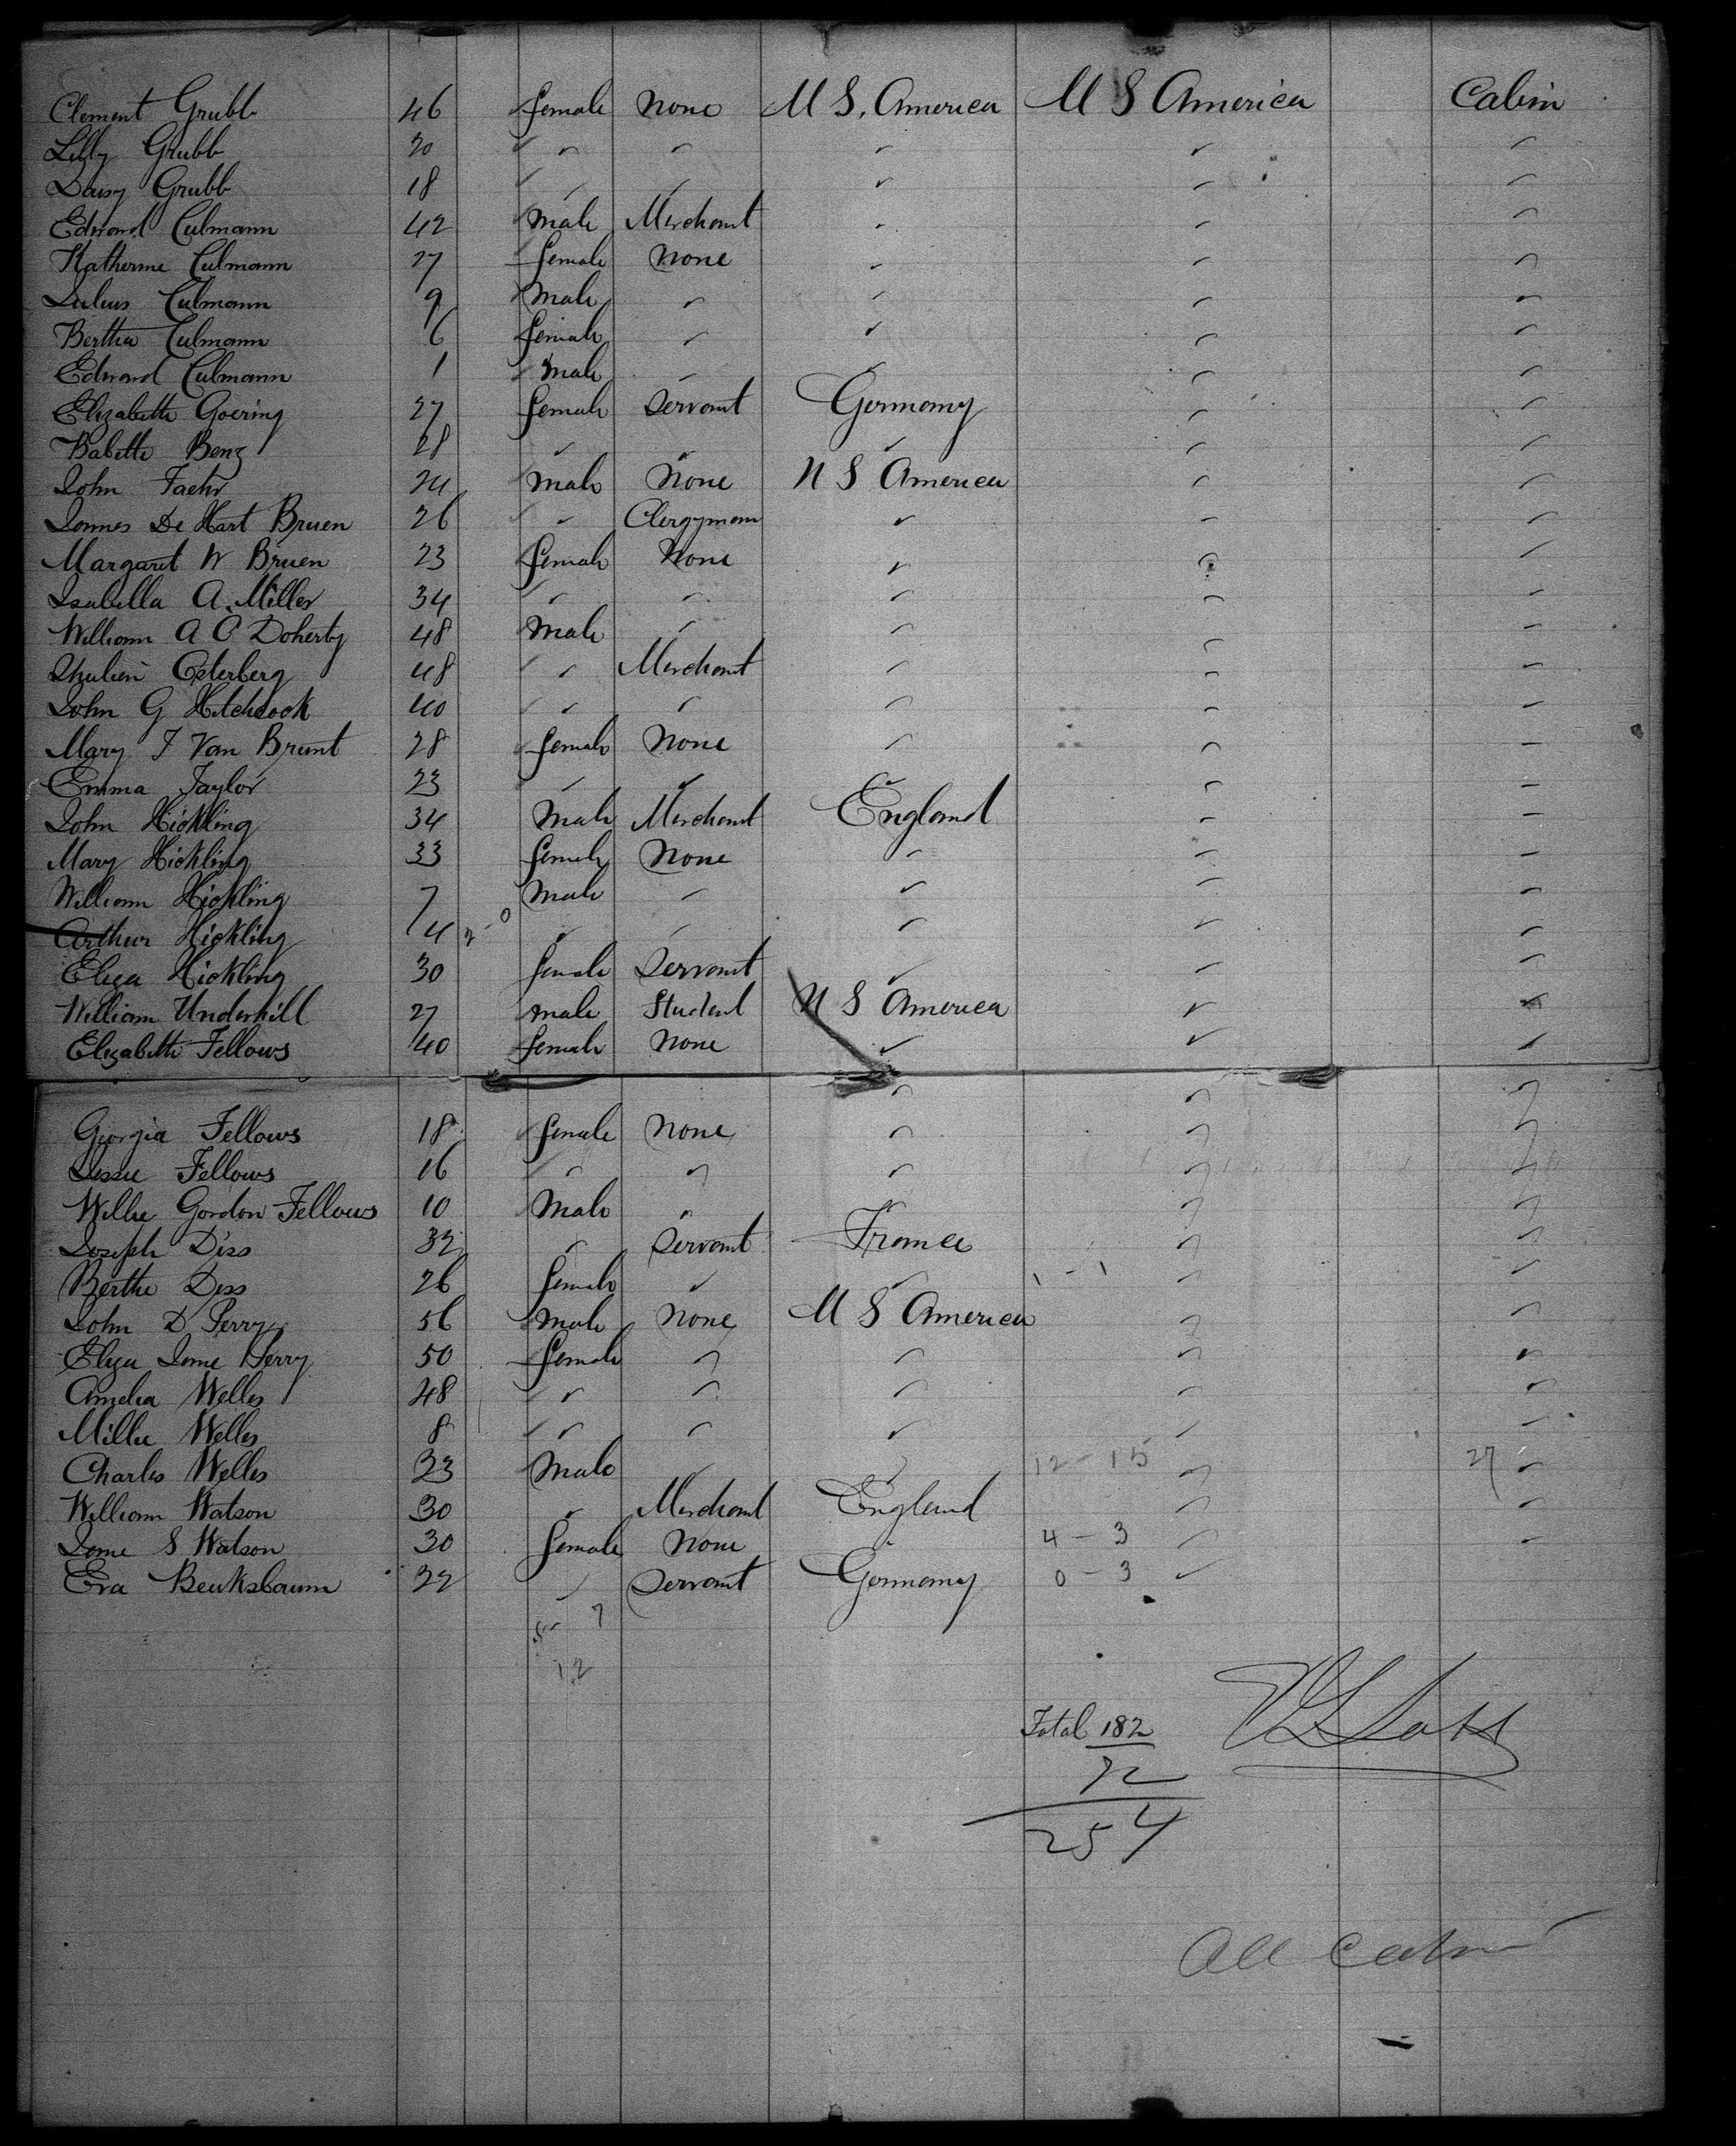 Clement Grubb 46 female None U S. America U S America Cabin
Lilly Grubb 20 " " " " "
Daisy Grubb 18 " " " " "
Edward Culmann 42 male Merchant " " "
Katherine Culmann 27 female None " " "
Julius Culmann 9 Male " " " "
Bertha Culmann 6 female " " " "
Edward Culmann 1 male " " " "
Elizabeth Goering 27 female Servant Germany " "
Babette Benz 28 " " " " "
John Faehr 24 male None U S America " "
James De Hart Bruen 26 " Clergyman " " "
Margaret W Bruen 23 female None " " "
Isabella A. Miller 34 " " " " "
William A O Doherty 48 Male " " " "
Esterberg 48 " Merchant " " "
John G Hitchcock 40 " " " " "
Mary T Van Brunt 28 female None " " "
Emma Taylor 23 " " " " "
John Hickling 34 Male Merchant England " "
Mary Hickling 33 female None " " "
William Hickling 7 Male " " " "
Arthur Hickling 4 " " " " "
Eliza Hickling 30 female Servant " " "
William Underhill 27 male Student U S America " "
Elizabeth Fellows 40 female None " " "
Georgia Fellows 18 female None " " "
Jessie Fellows 16 " " " " "
Willie Gordon Fellows 10 Male " " " "
Joseph Diss 32 " Servant France " "
Berthe Diss 26 female " " 1 - 1 " "
John D Perry 56 Male None U S America " "
Eliza Jane Perry 50 female " " " "
Amelia Welles 48 " " " " "
Millie Welles 8 " " " " "
Charles Welles 23 Male " " 12 - 15 " 27 "
William Watson 30 " Merchant England " "
Jane S Watson 30 female None 4 - 3 " "
Eva Beuksbaum 32 " Servant Germany 0 - 3 "
5 - 7
12
Total 182
72
254
All Cabin